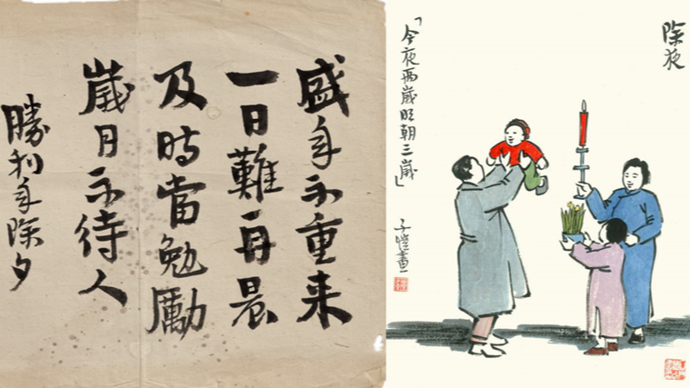 盛年不重来
一日難再晨
及時當勉勵
歲月不待人
勝利年除夕
除夜
「今夜兩歲明朝三歲」
子愷畫